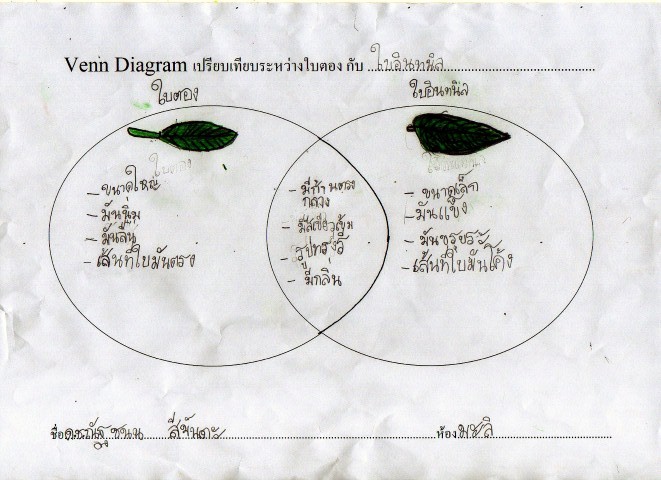 Venn Diagram เปรียบเทียบระหว่างใบตอง กับ ใบอินทนิล
ใบตอง
ใบอินทนิล
ใบตอง
- ขนาดใหญ่
- มันนุ่ม
- มันลื่น
- เส้นที่ใบมันตรง
- มีก้านตรง
กลาง
- มีสีเขียวเข้ม
- รูปทรงรี
- มีกลิ่น
- ขนาดเล็ก
- มันแข็ง
- มันขรุขระ
- เส้นที่ใบมันโค้ง
ชื่อ ห้อง มะลิ